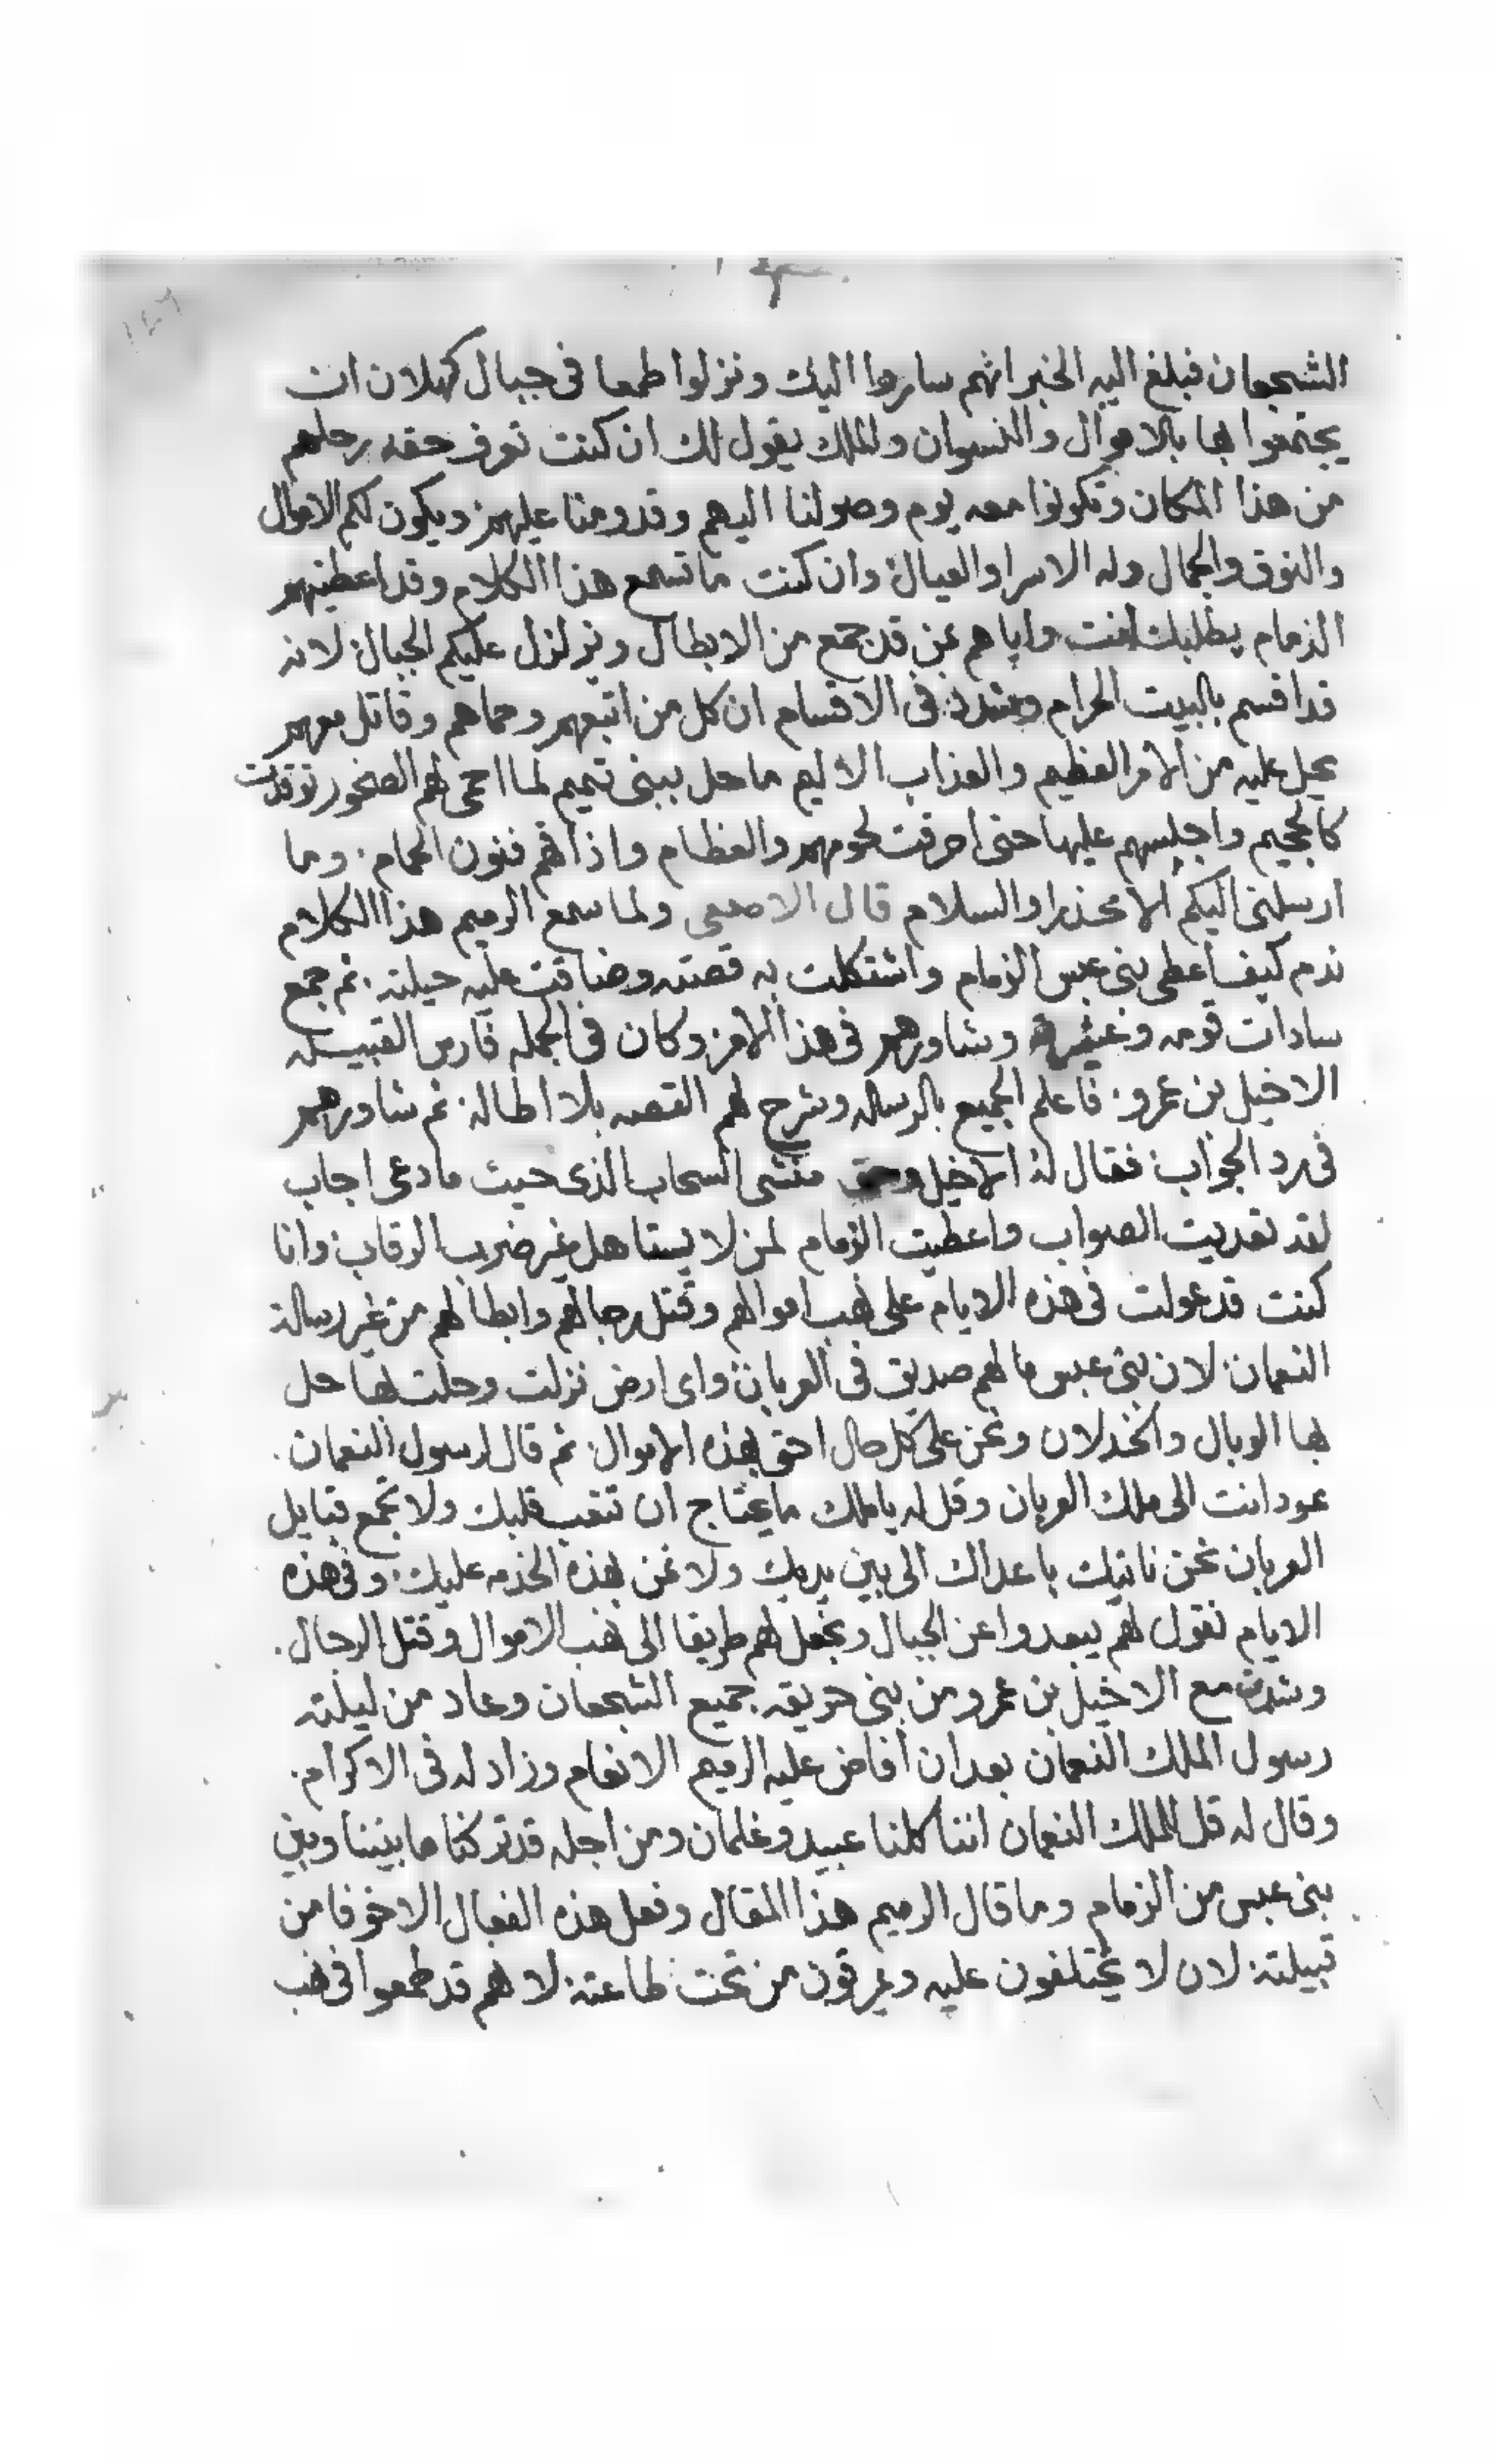 ١٤٦
الشجعان فبلغ اليه الخبر انهم ساروا اليك ونزلوا طمعا فى جبال كهلان ان
يجتمعوا بها بالاموال والنسوان والملك يقول لك ان كنت تعرف حقه رحلهم
من هذا المكان وتكونوا معه يوم وصولنا اليهم وقدومنا عليهم ويكون لكم الاموال
والنوق والجمال وله الاسرا والعيال وان كنت ما تسمع هذا الكلام وقد اعطيتهم
الزمام يطلبك انت واياهم بمن قد جمع من الابطال ويزلزل عليكم الجبال لانه
قد اقسم بالبيت الحرام وشدد فى الاقسام ان كل من اتبعهم وحماهم وقاتل معهم
يحل عليه من الامر العظيم والعذاب الاليم ما حل ببنى تميم لما احمى لهم الصخور توقدت
كالجحيم واجلسهم عليها حتى احرقت لحومهم والعظام واذاقهم فنون الحمام وما
ارسلنى اليكم الا محذرا والسلام قال الاصمعى ولما سمع الرميم هذا الكلام
ندم كيف اعطى بنى عبس الزمام واشتكلت به قصته وضاقت عليه حيلته ثم جمع
سادات قومه وعشيرته وشاورهم فى هذا الامر وكان فى الجمله فارس القبيله
الاخيل بن عمرو فاعلم الجميع بالرساله وشرح لهم القصه بلا اطاله ثم شاورهم
فى رد الجواب فقال له الاخيل وحق منشى السحاب الذى حيث ما دعى اجاب
لقد تعديت الصواب واعطيت الزمام لمن لا يستاهل غير ضرب الرقاب وانا
كنت قد عولت فى هذه الايام على نهب اموالهم وقتل رجالهم وابطالهم من غير رسالة
النعمان لان بنى عبس ما لهم صديق فى العربان واى ارض نزلت وحلت بها حل
بها الوبال والخذلان ونحن على كل حال احق بهذه الاموال ثم قال لرسول النعمان
عود انت الى ملك العربان وقل له يا ملك ما يحتاج ان تتعب قلبك ولا تجمع قبايل
العربان نحن ناتيك باعداك الى بين يديك ولا نمن بهذه الخدمه عليك وفى هذه
الايام نقول لهم يبعدوا عن الجبال ونجعل لهم طريقا الى نهب الاموال وقتل الرجال
وشدت مع الاخيل بن عمرو من بنى حريقه جميع الشجعان وعاد من ليلته
رسول الملك النعمان بعد ان افاض عليه الرميم الانعام وزاد له فى الاكرام
وقال له قل للملك النعمان اننا كلنا عبيد وغلمان ومن اجله قد تركنا ما بيننا وبين
بنى عبس من الزمام وما قال الرميم هذا المقال وفعل هذه الفعال الا خوفا من
قبيلته لان لا يختلفون عليه ويمرقون من تحت طاعته لا هم قد طمعوا فى نهب